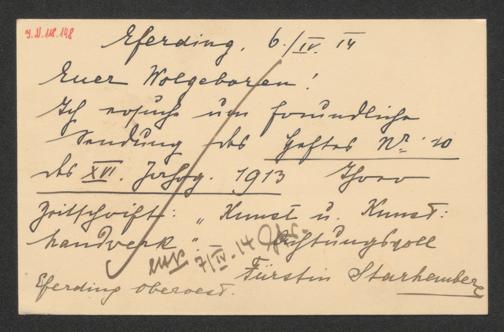 I.N. 118.148
Eferding, 6./IV. 14
Euer Wolgeboren!
Ich ersuche um freundliche
Sendung des Heftes Nr. 10
des XVI. Jahrg. 1913 Ihrer
Zeitschrift: „Kunst u. Kunst:
handwerk“. Achtungsvoll
7/IV. 14
Fürstin Starhemberg
Eferding Oberöst.